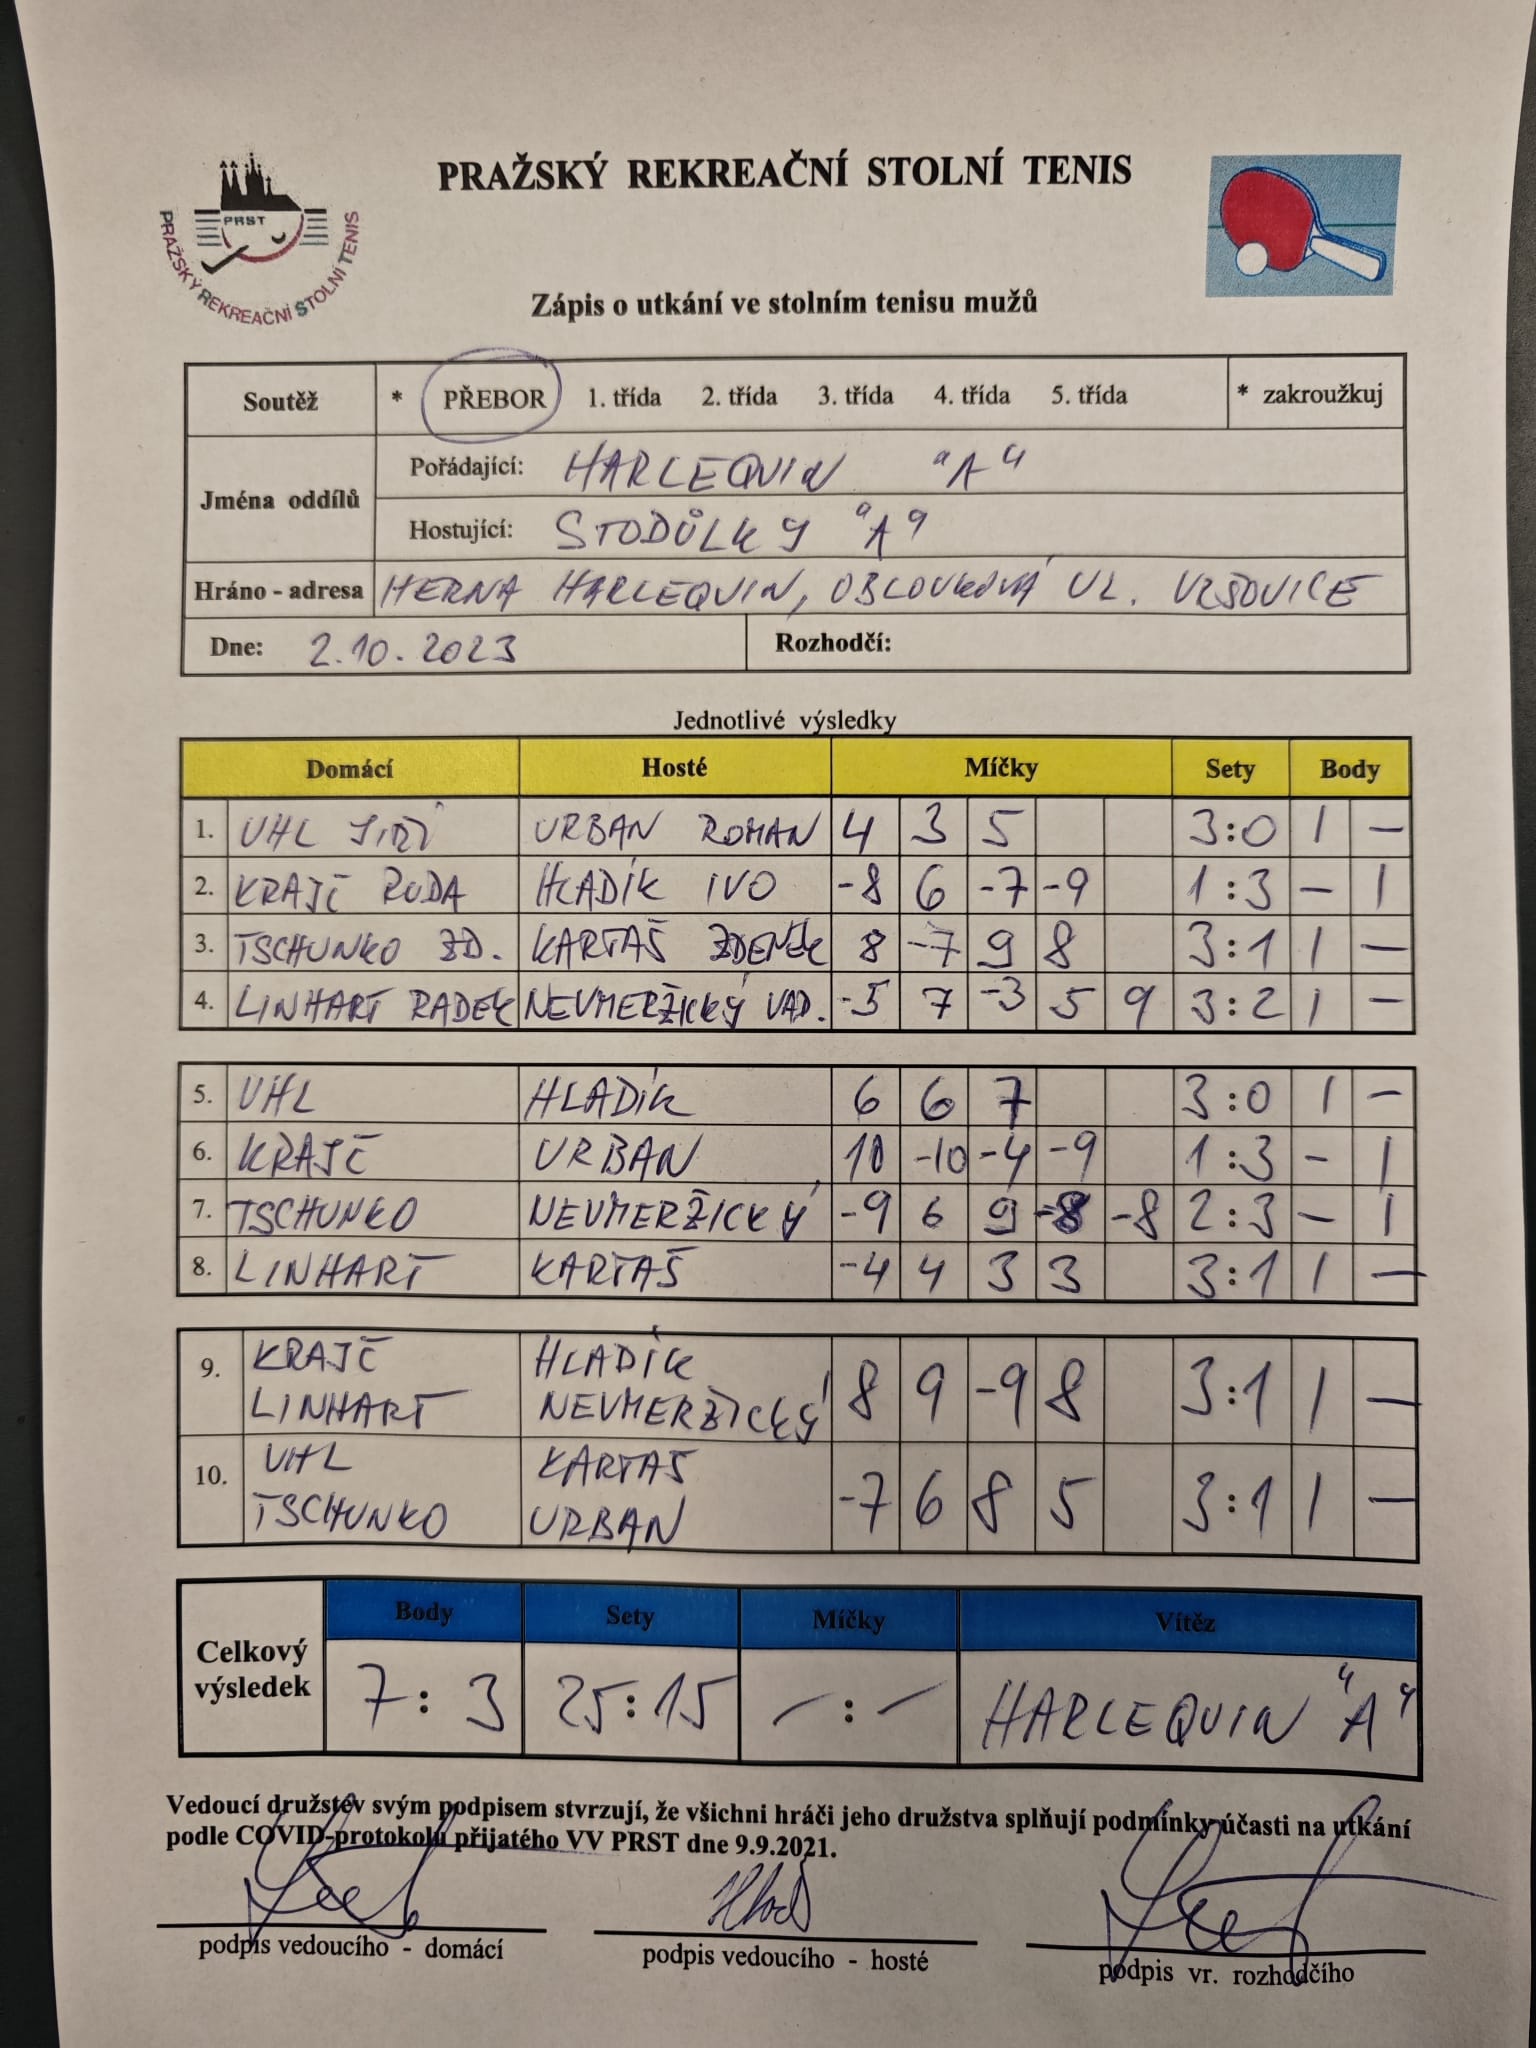 PRAŽSKÝ REKREAČNÍ STOLNÍ TENIS
PRST
PRAŽSKÝ REKREAČNÍ STOLNÍ TENIS
Zápis o utkání ve stolním tenisu mužů
Soutěž * PŘEBOR 1. třída 2. třída 3. třída 4. třída 5. třída * zakroužkuj
Jména oddílů
Pořádající: HARLEQUIN "A"
Hostující: STODŮLKY "A"
Hráno - adresa HERNA HARLEQUIN, OBLOUKOVÁ UL. VRŠOVICE
Dne: 2.10.2023 Rozhodčí:
Jednotlivé výsledky
Domácí Hosté Míčky Sety Body
1. UHL JIŘÍ URBAN ROMAN 4 3 5 3:0 1 –
2. KRAJČ RUDA HLADÍK IVO -8 6 -7 -9 1:3 – 1
3. TSCHUNKO ZD. KARTAŠ ZDENĚK 8 -7 9 8 3:1 1 –
4. LINHART RADEK NEVMERŽICKÝ VAD. -5 7 -3 5 9 3:2 1 –
5. UHL HLADÍK 6 6 7 3:0 1 –
6. KRAJČ URBAN 10 -10 -4 -9 1:3 – 1
7. TSCHUNKO NEVMERŽICKÝ -9 6 9 -8 -8 2:3 – 1
8. LINHART KARTAŠ -4 4 3 3 3:1 1 –
9. KRAJČ HLADÍK
LINHART NEVMERŽICKÝ 8 9 -9 8 3:1 1 –
10. UHL KARTAŠ
TSCHUNKO URBAN -7 6 8 5 3:1 1 –
Celkový výsledek
Body Sety Míčky Vítěz
7:3 25:15 –:– HARLEQUIN "A"
Vedoucí družstev svým podpisem stvrzují, že všichni hráči jeho družstva splňují podmínky účasti na utkání
podle COVID-protokolu přijatého VV PRST dne 9.9.2021.
podpis vedoucího - domácí podpis vedoucího - hosté podpis vr. rozhodčího